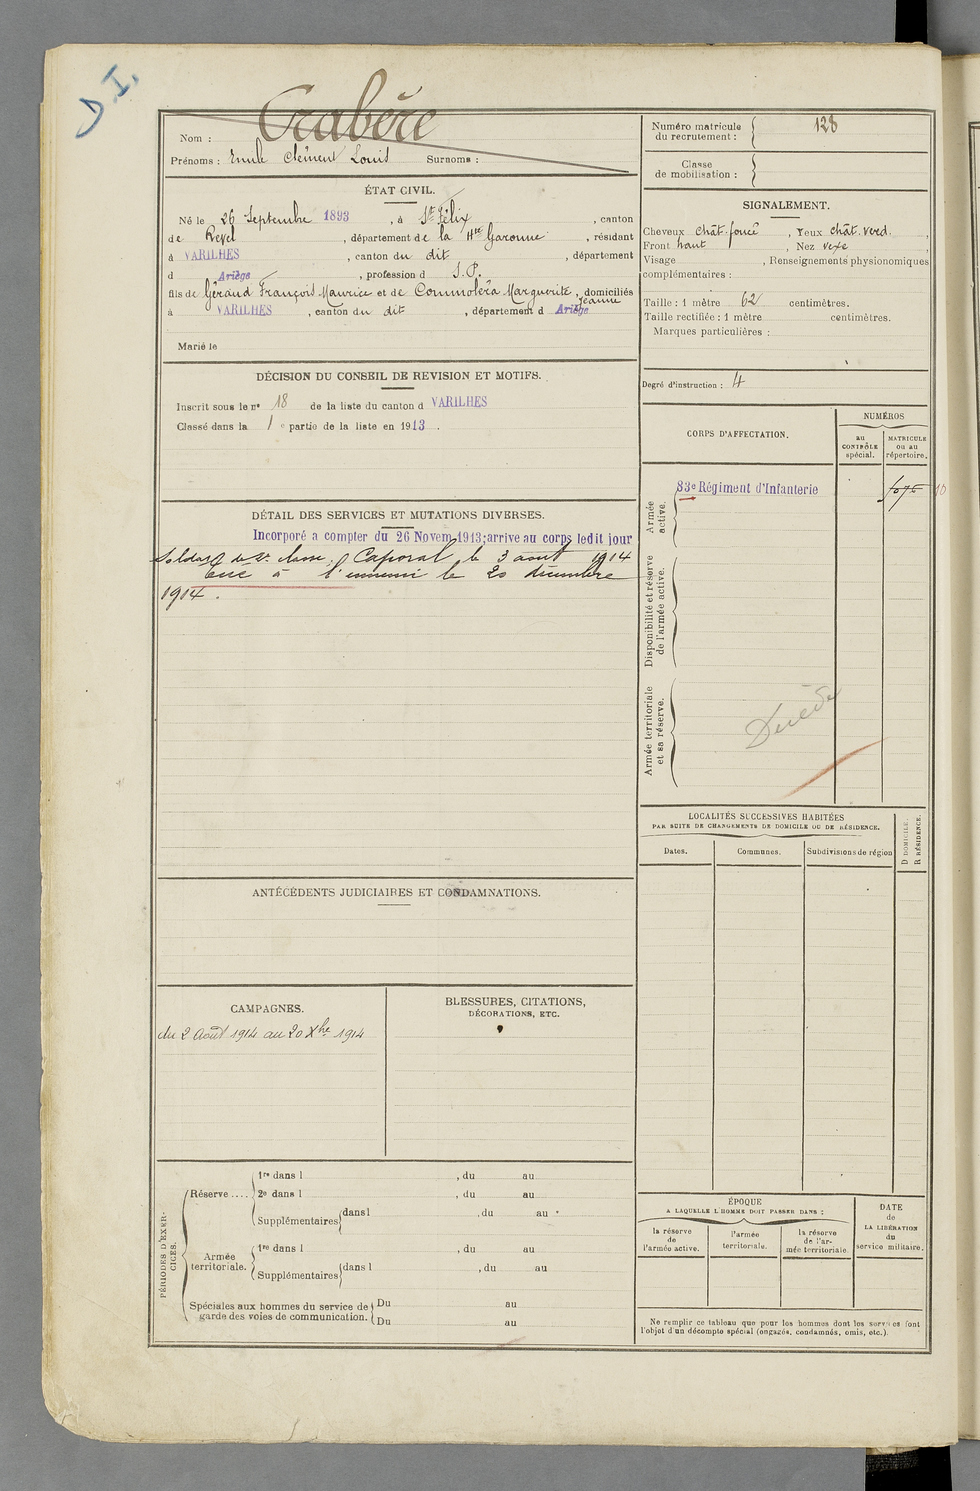 D.I.
Nom : Crabère
Prénoms : Emile Clément Louis Surnoms :
Numéro matricule du recrutement : 128
Classe de mobilisation :
ÉTAT CIVIL.
Né le 26 Septembre 1893, à St Félix, canton
de Revel, département de la Hte Garonne, résidant
à VARILHES, canton du dit, département
d Ariège, profession d S.P.
fils de Géraud François Maurice et de Commoléra Marguerite Jeanne, domiciliés
à VARILHES, canton du dit, département d Ariège
Marié le
SIGNALEMENT.
Cheveux chât. foncé, Yeux chât. verd.,
Front haut, Nez vexe,
Visage , Renseignements physionomiques
complémentaires :
Taille : 1 mètre 62 centimètres.
Taille rectifiée : 1 mètre centimètres.
Marques particulières :
Degré d'instruction : 4
DÉCISION DU CONSEIL DE REVISION ET MOTIFS.
Inscrit sous le nº 18 de la liste du canton d VARILHES
Classé dans la 1e partie de la liste en 1913.
CORPS D'AFFECTATION.
NUMÉROS
au CONTRÔLE spécial.
MATRICULE ou au répertoire.
Armée active.
83e Régiment d'Infanterie
10
Disponibilité et réserve de l'armée active.
Armée territoriale et sa réserve.
DÉTAIL DES SERVICES ET MUTATIONS DIVERSES.
Incorporé a compter du 26 Novem 1913; arrive au corps ledit jour
soldat de 2e classe. Caporal le 3 août 1914
Tué à l'ennemi le 20 décembre
1914.
LOCALITÉS SUCCESSIVES HABITÉES
PAR SUITE DE CHANGEMENTS DE DOMICILE OU DE RÉSIDENCE.
Dates.
Communes.
Subdivisions de région
D DOMICILE.
R RÉSIDENCE.
ANTÉCÉDENTS JUDICIAIRES ET CONDAMNATIONS.
CAMPAGNES.
du 2 Août 1914 au 20 Xbre 1914
BLESSURES, CITATIONS,
DÉCORATIONS, ETC.
PÉRIODES D'EXERCICES.
Réserve ....
1re dans l , du au
2e dans l , du au
Supplémentaires dans l , du au
Armée territoriale.
1re dans l , du au
Supplémentaires dans l , du au
Spéciales aux hommes du service de garde des voies de communication.
Du au
Du au
ÉPOQUE
A LAQUELLE L'HOMME DOIT PASSER DANS :
la réserve de l'armée active.
l'armée territoriale.
la réserve de l'armée territoriale.
DATE de LA LIBÉRATION du service militaire.
Ne remplir ce tableau que pour les hommes dont les services font
l'objet d'un décompte spécial (engagés, condamnés, omis, etc.).